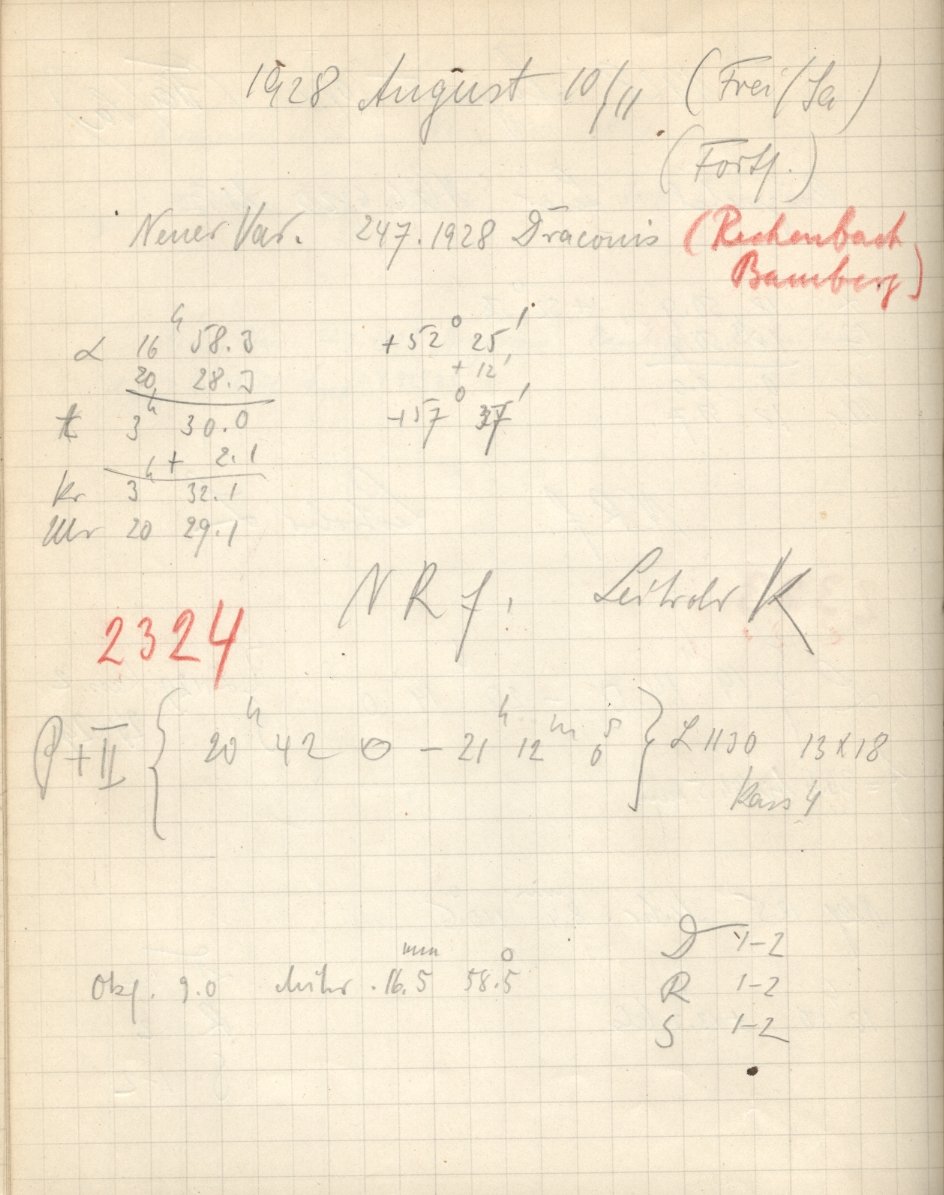 1928 August 10/11 (Frei/Sa)
(Forts.)
Neuer Var. 247.1928 Draconis (Rechenbach
Bamberg)
α 16h 58.3 +52° 25'
20 28.3 + 12'
t 3h 30.0 +57° 37'
+ 2.1
Kr 3h 32.1
Uhr 20 29.1
N R f. Leitrohr K
2324
P+II { 20h 42 0 - 21h 12m 0s } L 1130 13x18
Kass 4
Obj. 9.0 Mikr. 16.5mm 58.5°
D 1-2
R 1-2
S 1-2